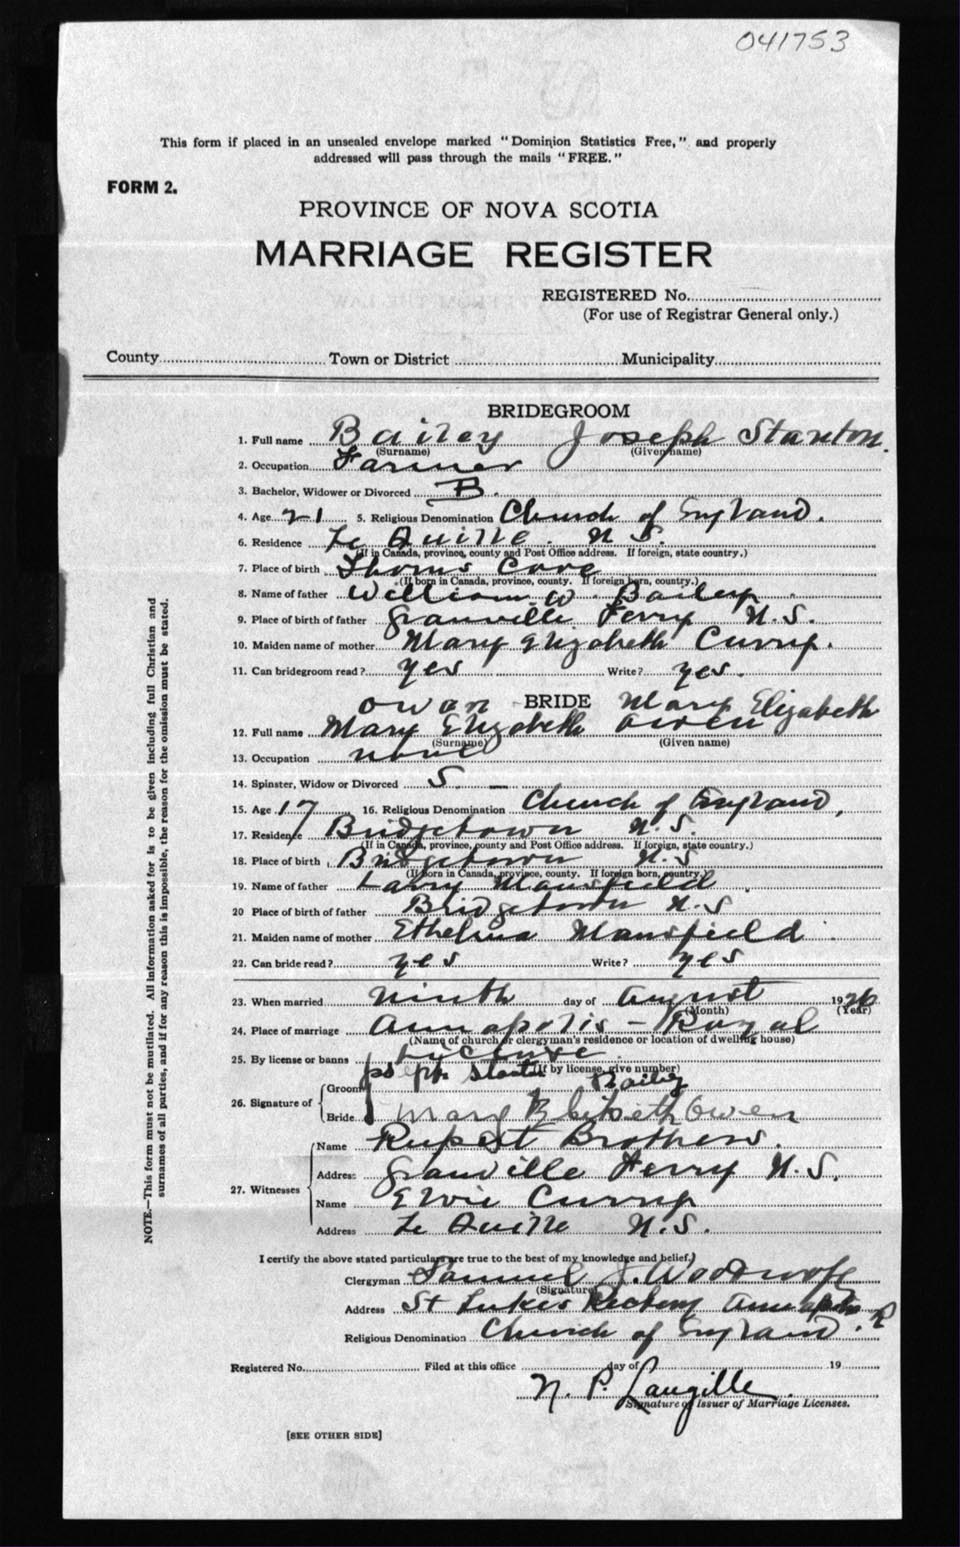 041753
This form if placed in an unsealed envelope marked "Dominion Statistics Free," and properly
addressed will pass through the mails "FREE."
FORM 2.
PROVINCE OF NOVA SCOTIA
MARRIAGE REGISTER
REGISTERED No.
(For use of Registrar General only.)
County Town or District Municipality
BRIDEGROOM
1. Full name Bailey Joseph Stanton.
(Surname) (Given name)
2. Occupation Farmer
3. Bachelor, Widower or Divorced B.
4. Age 21 5. Religious Denomination Church of England.
6. Residence Le Quille. N S.
(If in Canada, province, county and Post Office address. If foreign, state country.)
7. Place of birth Thorns Cove
(If born in Canada, province, county. If foreign born, country.)
8. Name of father William W. Bailey.
9. Place of birth of father Granville Ferry N.S.
10. Maiden name of mother Mary Elizabeth Curry.
11. Can bridegroom read? yes Write? yes.
BRIDE
Owen Mary Elizabeth
12. Full name Mary Elizabeth Owen
(Surname) (Given name)
13. Occupation none
14. Spinster, Widow or Divorced S.
15. Age 17 16. Religious Denomination Church of England,
17. Residence Bridgetown N.S.
(If in Canada, province, county and Post Office address. If foreign, state country.)
18. Place of birth Bridgetown N.S
(If born in Canada, province, county. If foreign born, country.)
19. Name of father Larry Mansfield
20 Place of birth of father Bridgetown N.S
21. Maiden name of mother Ethelina Mansfield
22. Can bride read? yes Write? yes
23. When married Ninth day of August 1926
(Month) (Year)
24. Place of marriage Annapolis - Royal
(Name of church or clergyman's residence or location of dwelling house)
25. By license or banns License
(If by license, give number)
26. Signature of
Groom Joseph Stanton Bailey
Bride Mary Elizabeth Owen
27. Witnesses
Name Rupert Brothers.
Address Granville Ferry N.S.
Name Elvie Curry
Address Le Quille N.S.
I certify the above stated particulars are true to the best of my knowledge and belief.
Clergyman Samuel J. Woodroofe
(Signature)
Address St Lukes Rectory Annapolis R
Religious Denomination Church of England.
Registered No. Filed at this office day of 19
N. P. Langille
Signature of Issuer of Marriage Licenses.
[SEE OTHER SIDE]
NOTE.—This form must not be mutilated. All information asked for is to be given including full Christian and
surnames of all parties, and if for any reason this is impossible, the reason for the omission must be stated.